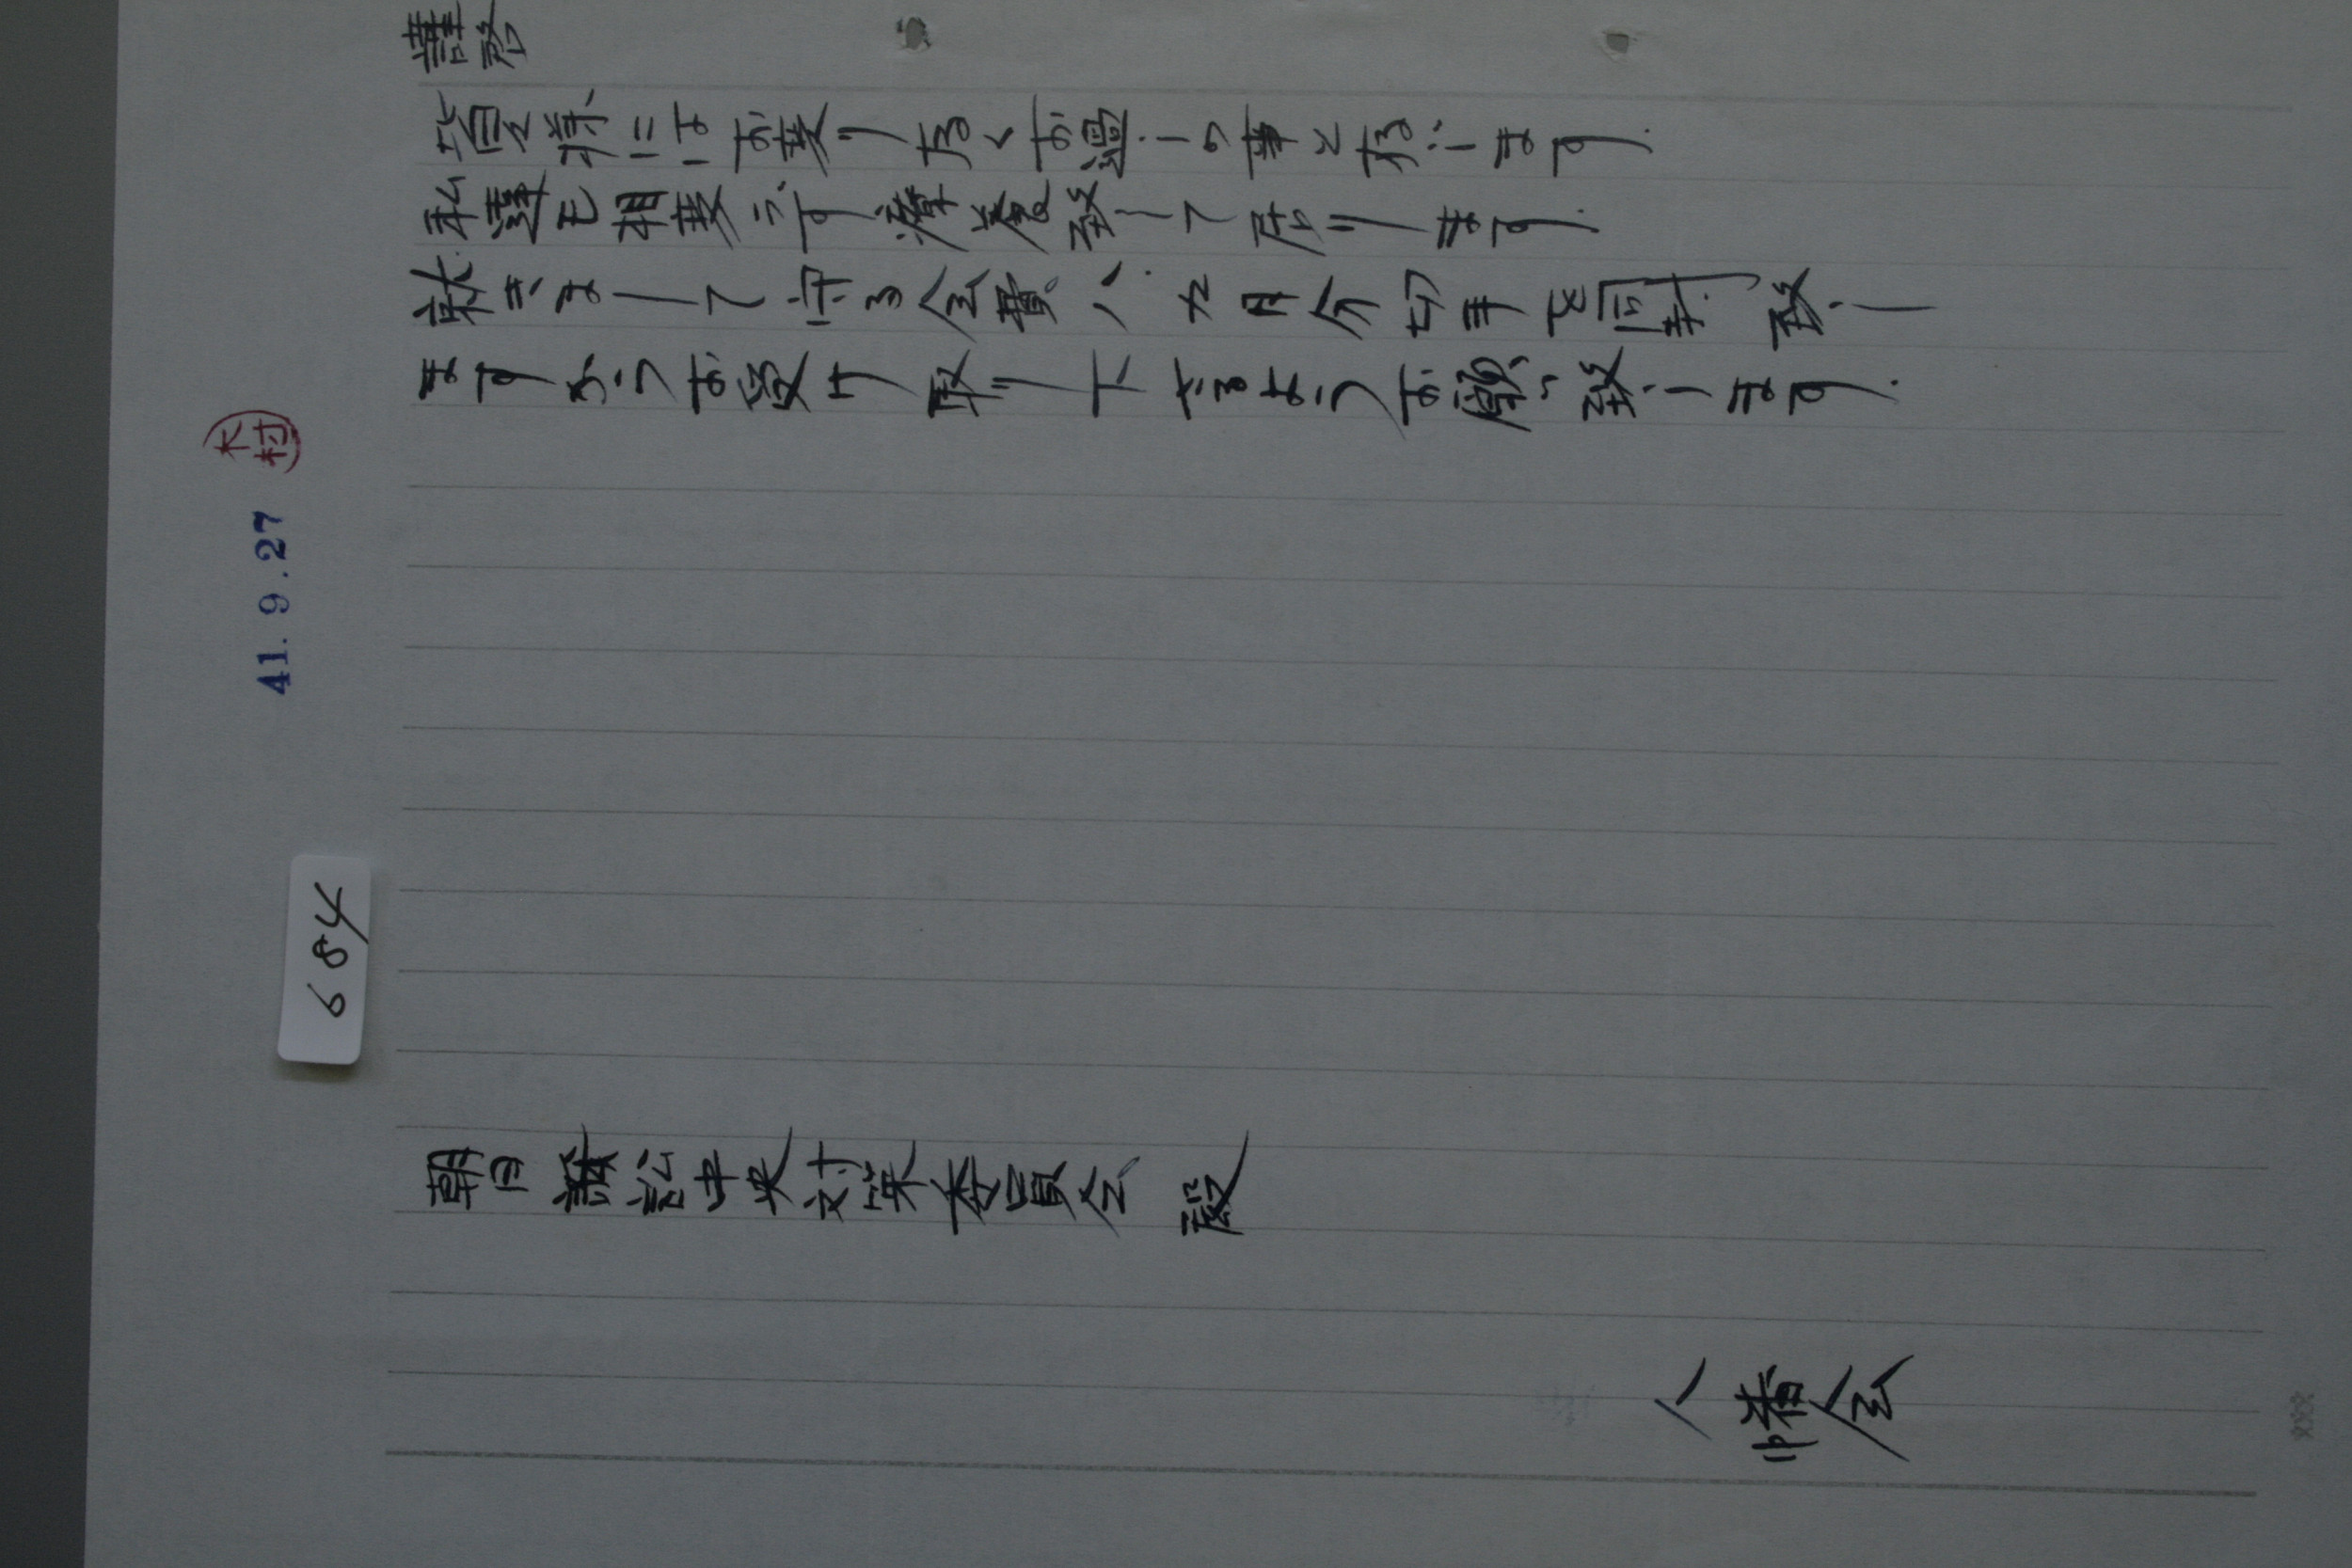 謹啓
皆様にはお変りなくお過しの事と存じます.
私達も相変らず療養致して居ります.
就きまして守る会費八、九月分切手を同封致し
ますからお受け取り下さるようお願い致します.
朝日訴訟中央対策委員会 殿
八幡会
木村
41.9.27
684